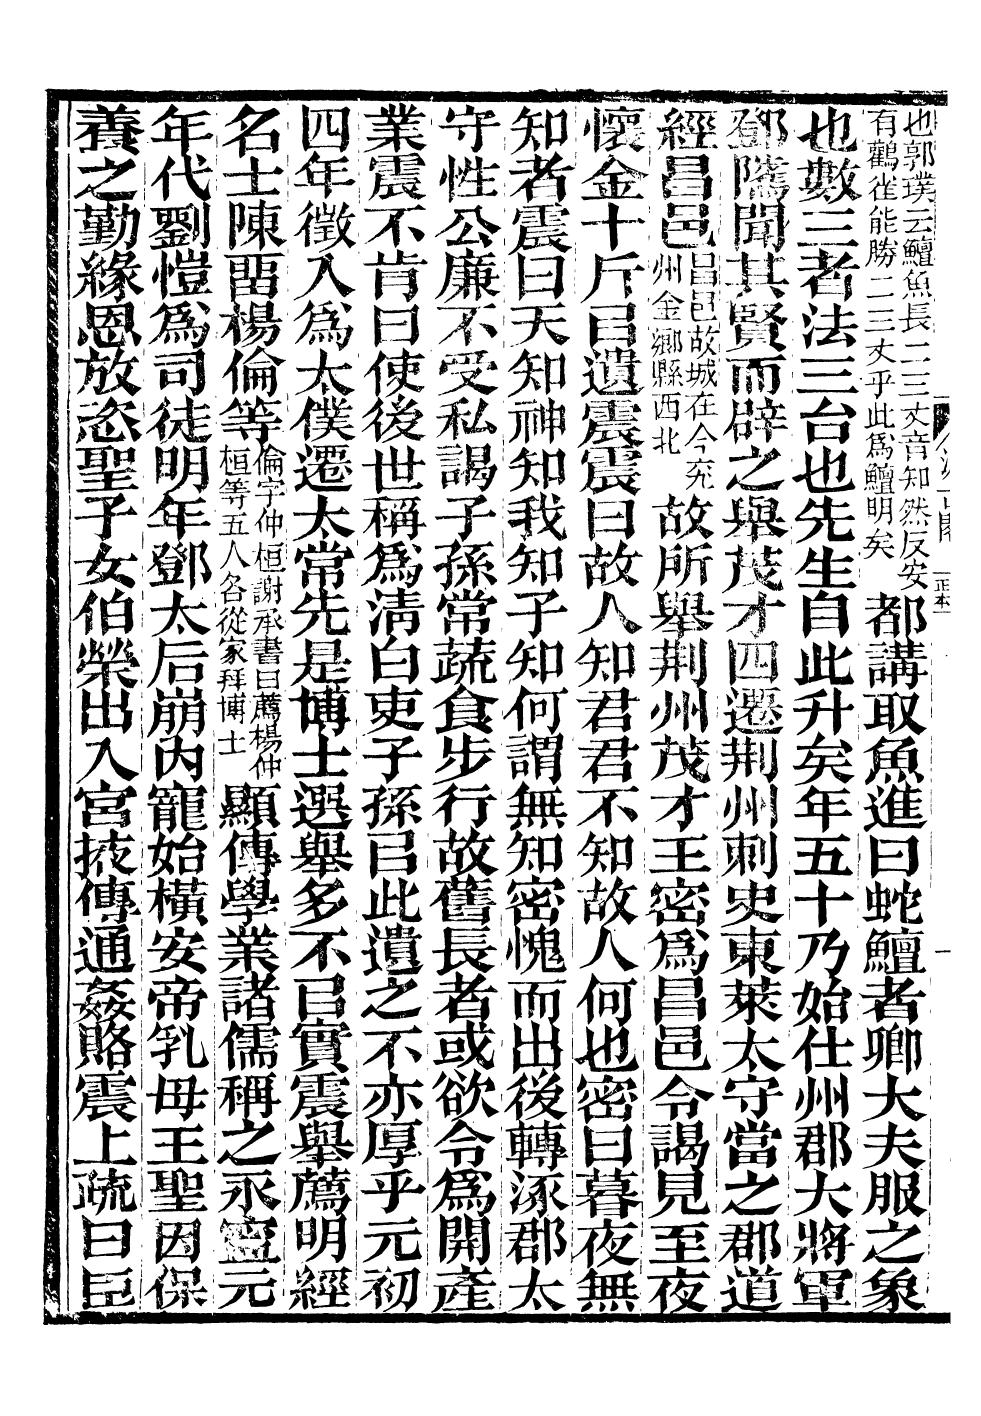 也郭璞云鱣魚長二三丈音知然反安
有鸛雀能勝二三丈乎此爲鱣明矣
都講取魚進曰蛇鱣者卿大夫服之象
也數三者法三台也先生自此升矣年五十乃始仕州郡大將軍
鄧隲聞其賢而辟之舉茂才四遷荆州刺史東萊太守當之郡道
經昌邑
昌邑故城在今兖
州金鄉縣西北
故所舉荆州茂才王密爲昌邑令謁見至夜
懷金十斤㠯遺震震曰故人知君君不知故人何也密曰暮夜無
知者震曰天知神知我知子知何謂無知密愧而出後轉涿郡太
守性公廉不受私謁子孫常蔬食步行故舊長者或欲令爲開產
業震不肯曰使後世稱爲清白吏子孫㠯此遺之不亦厚乎元初
四年徵入爲太僕遷太常先是博士選舉多不㠯實震舉薦明經
名士陳畱楊倫等
倫字仲桓謝承書曰薦楊仲
桓等五人各從家拜博士
顯傳學業諸儒稱之永寧元
年代劉愷爲司徒明年鄧太后崩內寵始橫安帝乳母王聖因保
養之勤緣恩放恣聖子女伯榮出入宮掖傳通姦賂震上疏曰臣